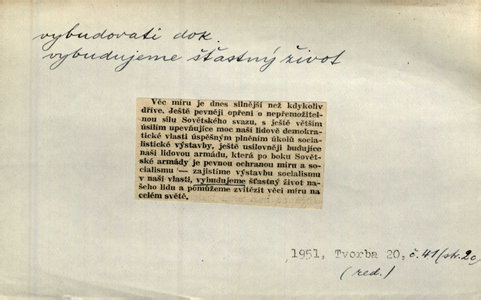 vybudovati dok.
vybudujeme šťastný život
Věc míru je dnes silnější než kdykoliv
dříve. Ještě pevněji opřeni o nepřemožitel-
nou sílu Sovětského svazu, s ještě větším
úsilím upevňujíce moc naší lidově demokra-
tické vlasti úspěšným plněním úkolů socia-
listické výstavby, ještě usilovněji budujíce
naši lidovou armádu, která po boku Sovět-
ské armády je pevnou ochranou míru a so-
cialismu — zajistíme výstavbu socialismu
v naší vlasti, vybudujeme šťastný život na-
šeho lidu a pomůžeme zvítězit věci míru na
celém světě.
1951, Tvorba 20, č. 41 (str. 2c)
(red.)